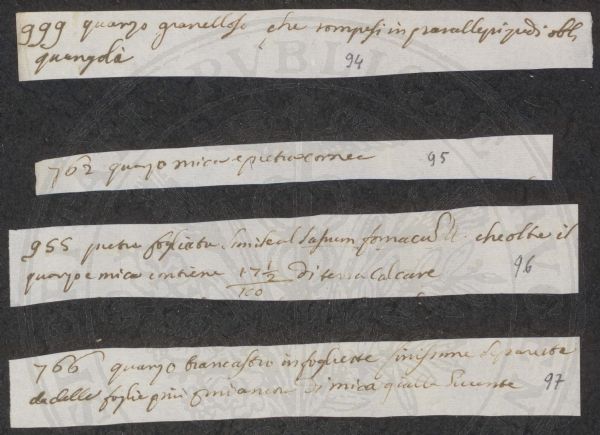 999 quarzo granelloso che rompesi in paralle pipedi obli
quangolà
94
762 quarzo mica e pietra cornea
95
955 pietra fogliata simile al Saxum fornacum che oltre il
quarzo e mica contiene 17 1/2 / 100 di terra calcare
96
766 quarzo biancastro in fogliette finissime separate
da delle foglie più fini ancora di mica gialla lucente
97